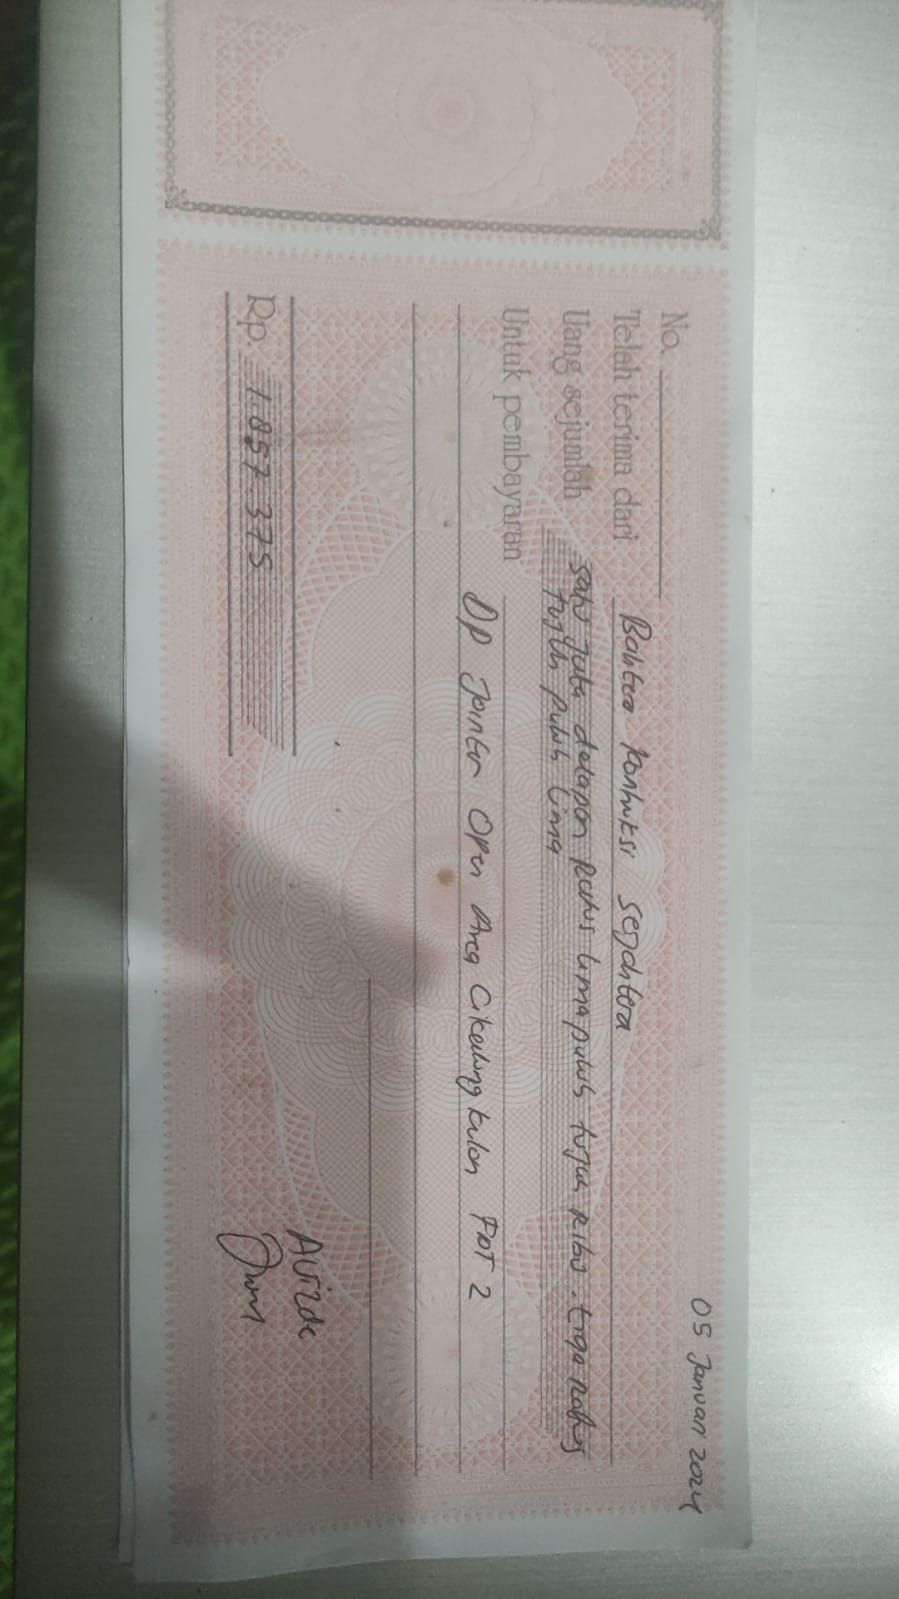 05 Januari 2024
No.
Telah terima dari Bahtera Kontruksi Sejahtera
Uang sejumlah satu juta delapan Ratus lima puluh tujuh Ribu. tiga Ratus
tujuh puluh lima
Untuk pembayaran
DP Jointer Open Area Cikedung Kulon FDT 2
Rp. 1.857.375